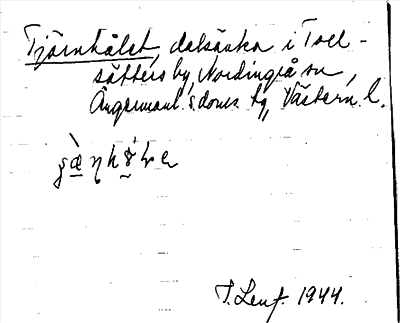 Tjärnhålet, dalsänka i Toll-
sätters by, Nordingrå sn,
Ångermanl. s. doms tg, Västern. l.
1944.